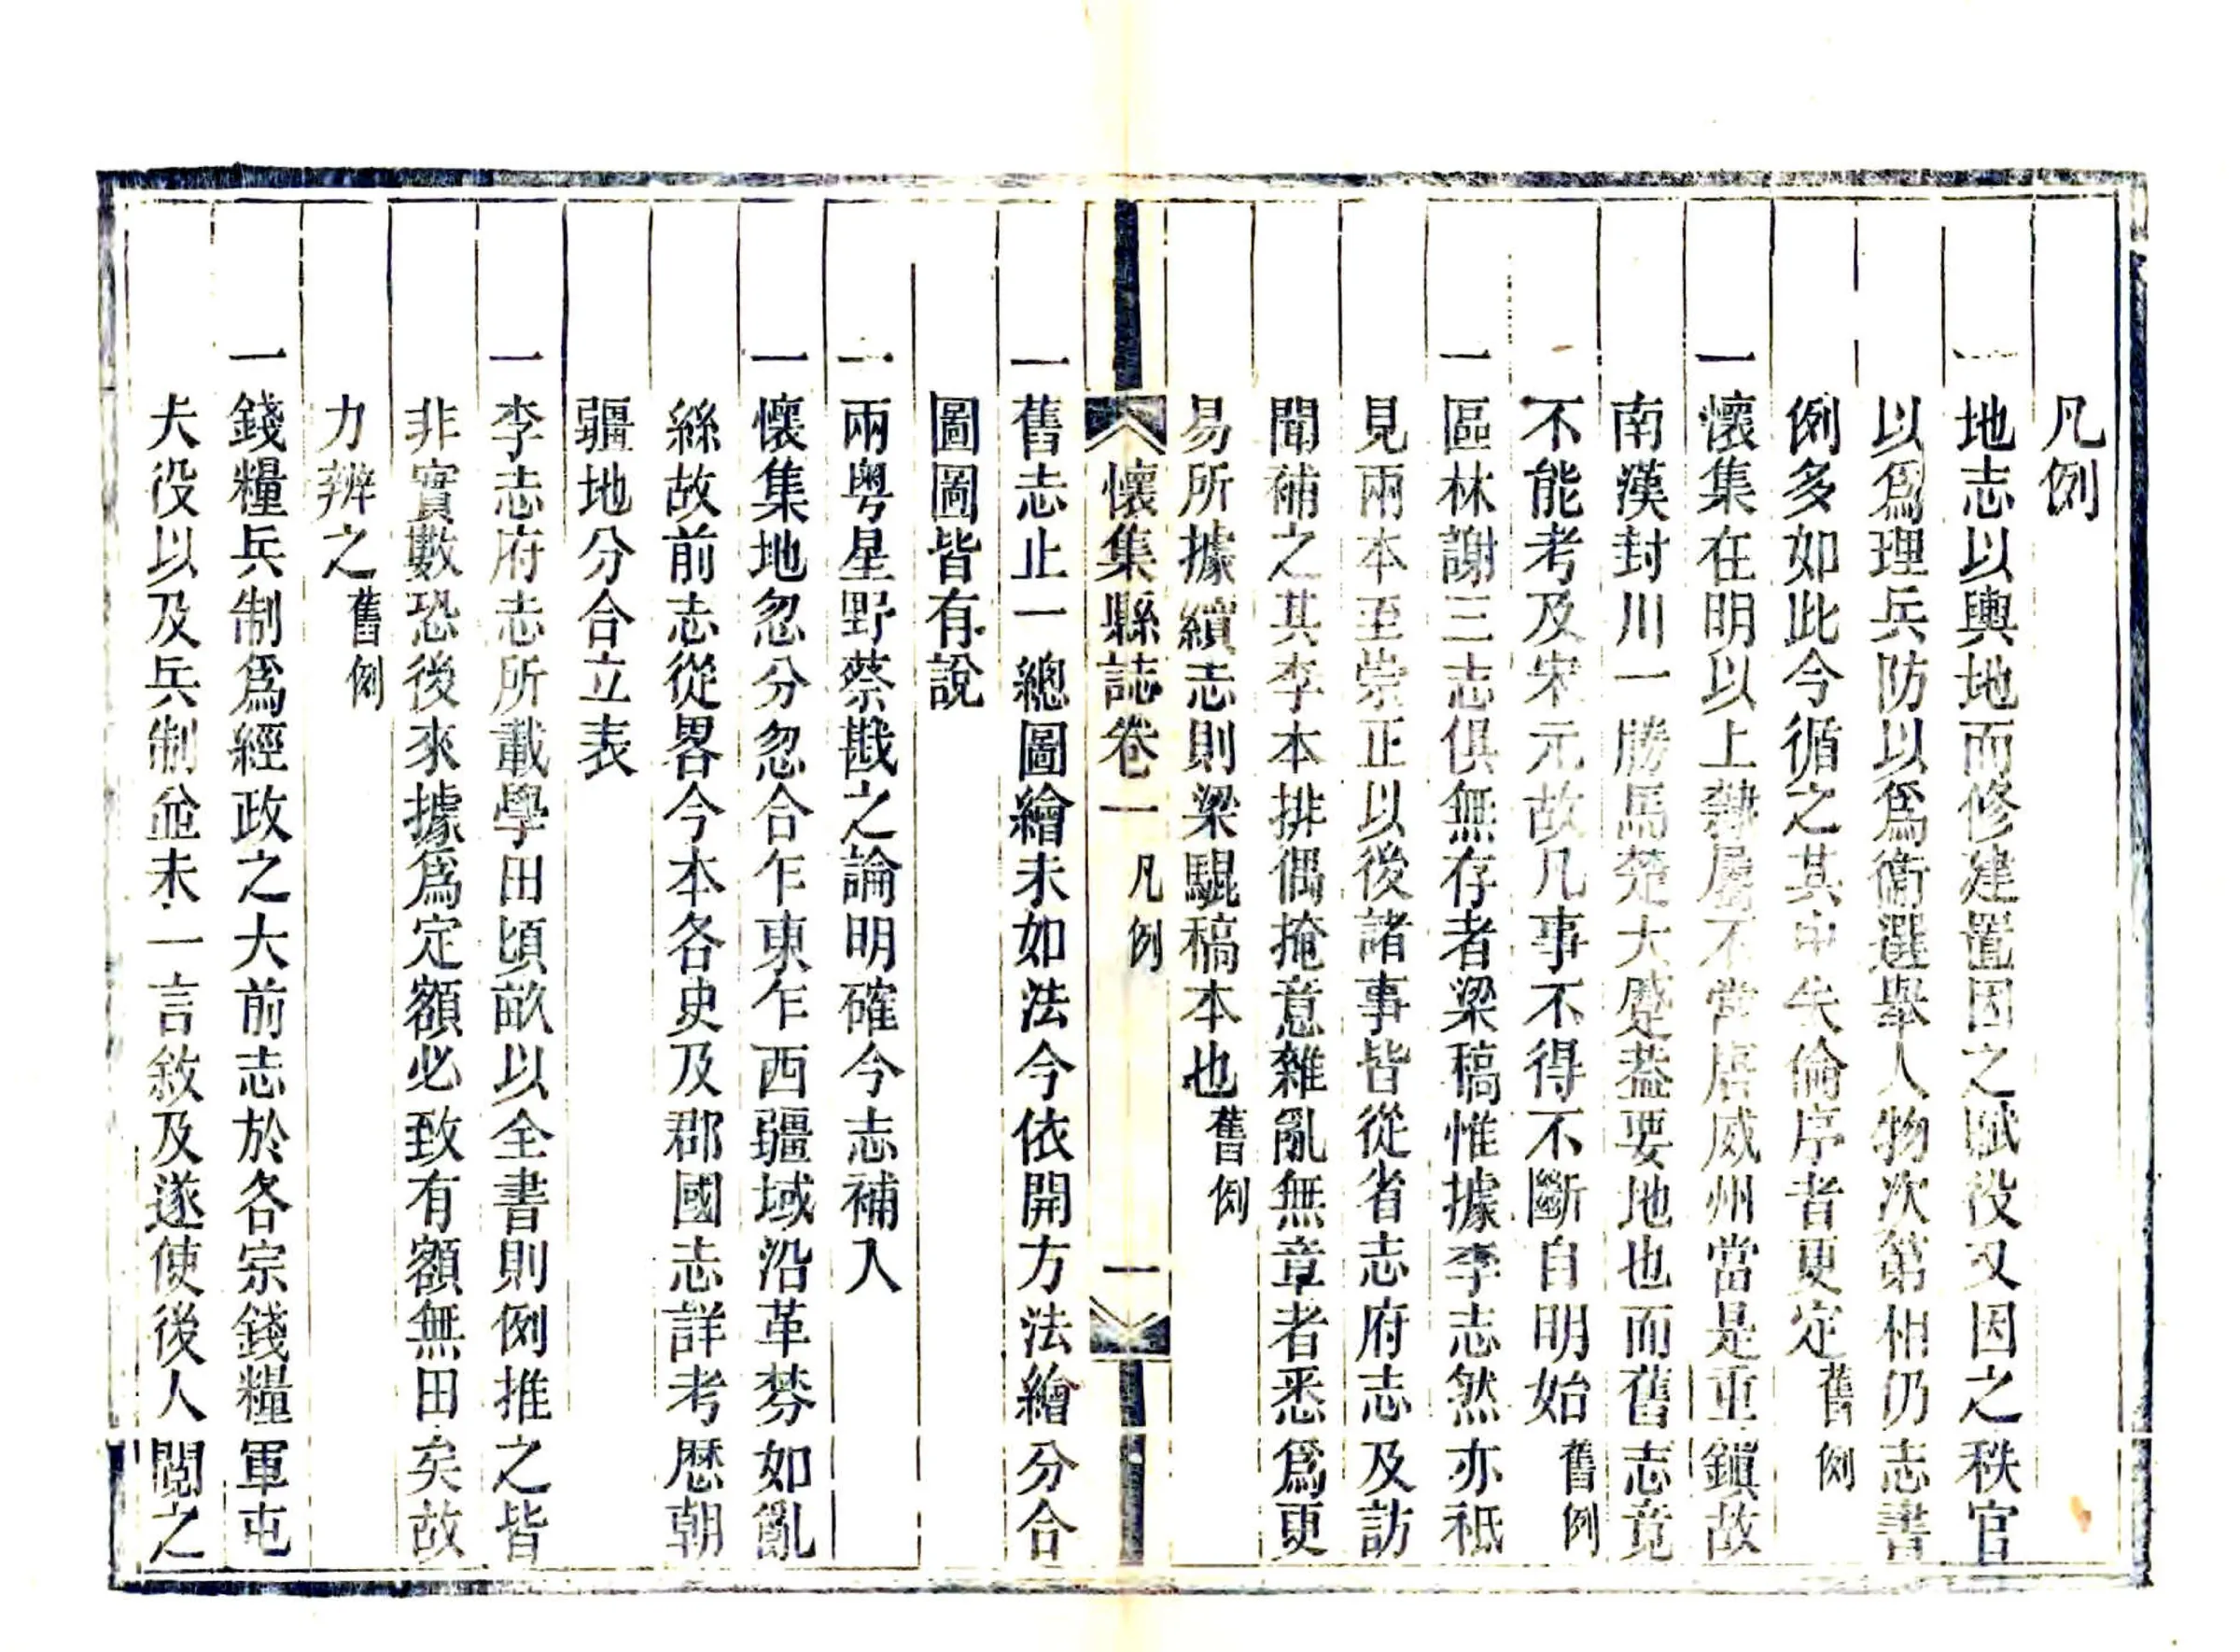 凡例
一地志以輿地而修建置因之賦役又因之秩官
以爲理兵防以爲衞選舉人物次第相仍志書
例多如此今循之其中失倫序者更定舊例
一懷集在明以上隸屬不常唐威州當是重鎭故
南漢封川一勝馬楚大蹙葢要地也而舊志竟
不能考及宋元故凡事不得不斷自明始舊例
一區林謝三志俱無存者梁稿惟據李志然亦袛
見兩本至崇正以後諸事皆從省志府志及訪
聞補之其李本排偶掩意雜亂無章者悉爲更
易所據續志則梁騉稿本也舊例
懷集縣誌卷一 凡例 一
一舊志止一總圖繪未如法今依開方法繪分合
圖圖皆有說
一兩粤星野蔡戡之論明確今志補入
一懷集地忽分忽合乍東乍西疆域沿革棼如亂
絲故前志從畧今本各史及郡國志詳考歷朝
疆地分合立表
一李志府志所載學田頃畝以全書則例推之皆
非實數恐後來據爲定額必致有額無田矣故
力辨之舊例
一錢糧兵制爲經政之大前志於各宗錢糧軍屯
夫役以及兵制並未一言敘及遂使後人閱之